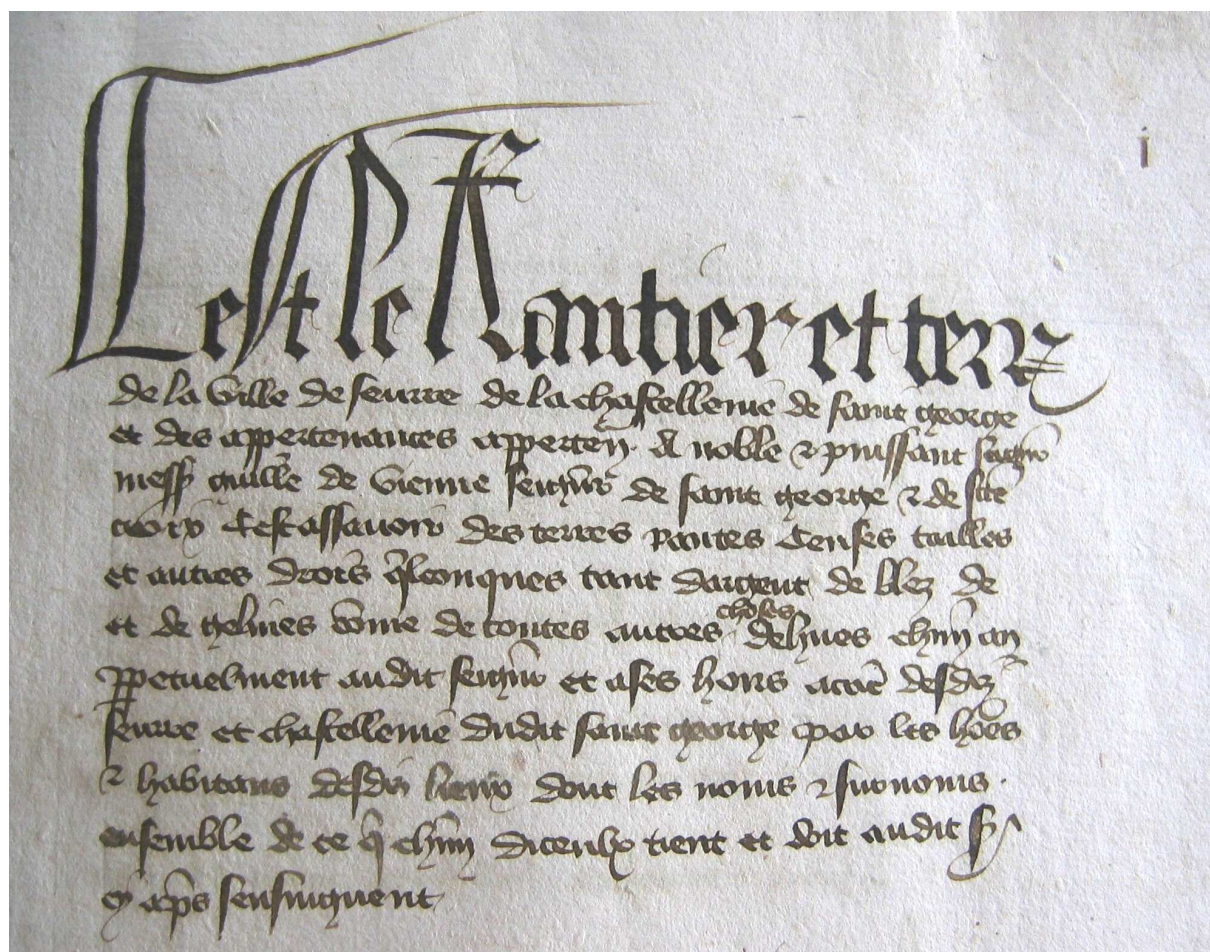 i
Cest le Rantier et terr
de la ville de seurre de la chastellenie de saint george
et des appertenances apperten. A noble & puissant seignr
mess guille de vienne seignr de saint george & de ste
croix Cest assavoir des terres rantes Censes tailles
et autres drois qlconques tant dargent de blez de
et de gelines come de toutes autres choses dehues chun an
ppetuelment audit seignr et a ses hoirs a cause desdiz
seurre et chastellenie dudit saint george par les homes
& habitans desdiz lieux dont les noms & surnoms .
ensemble de ce q chun diceulx tient et doit audit sr
cy aps sensuiguent